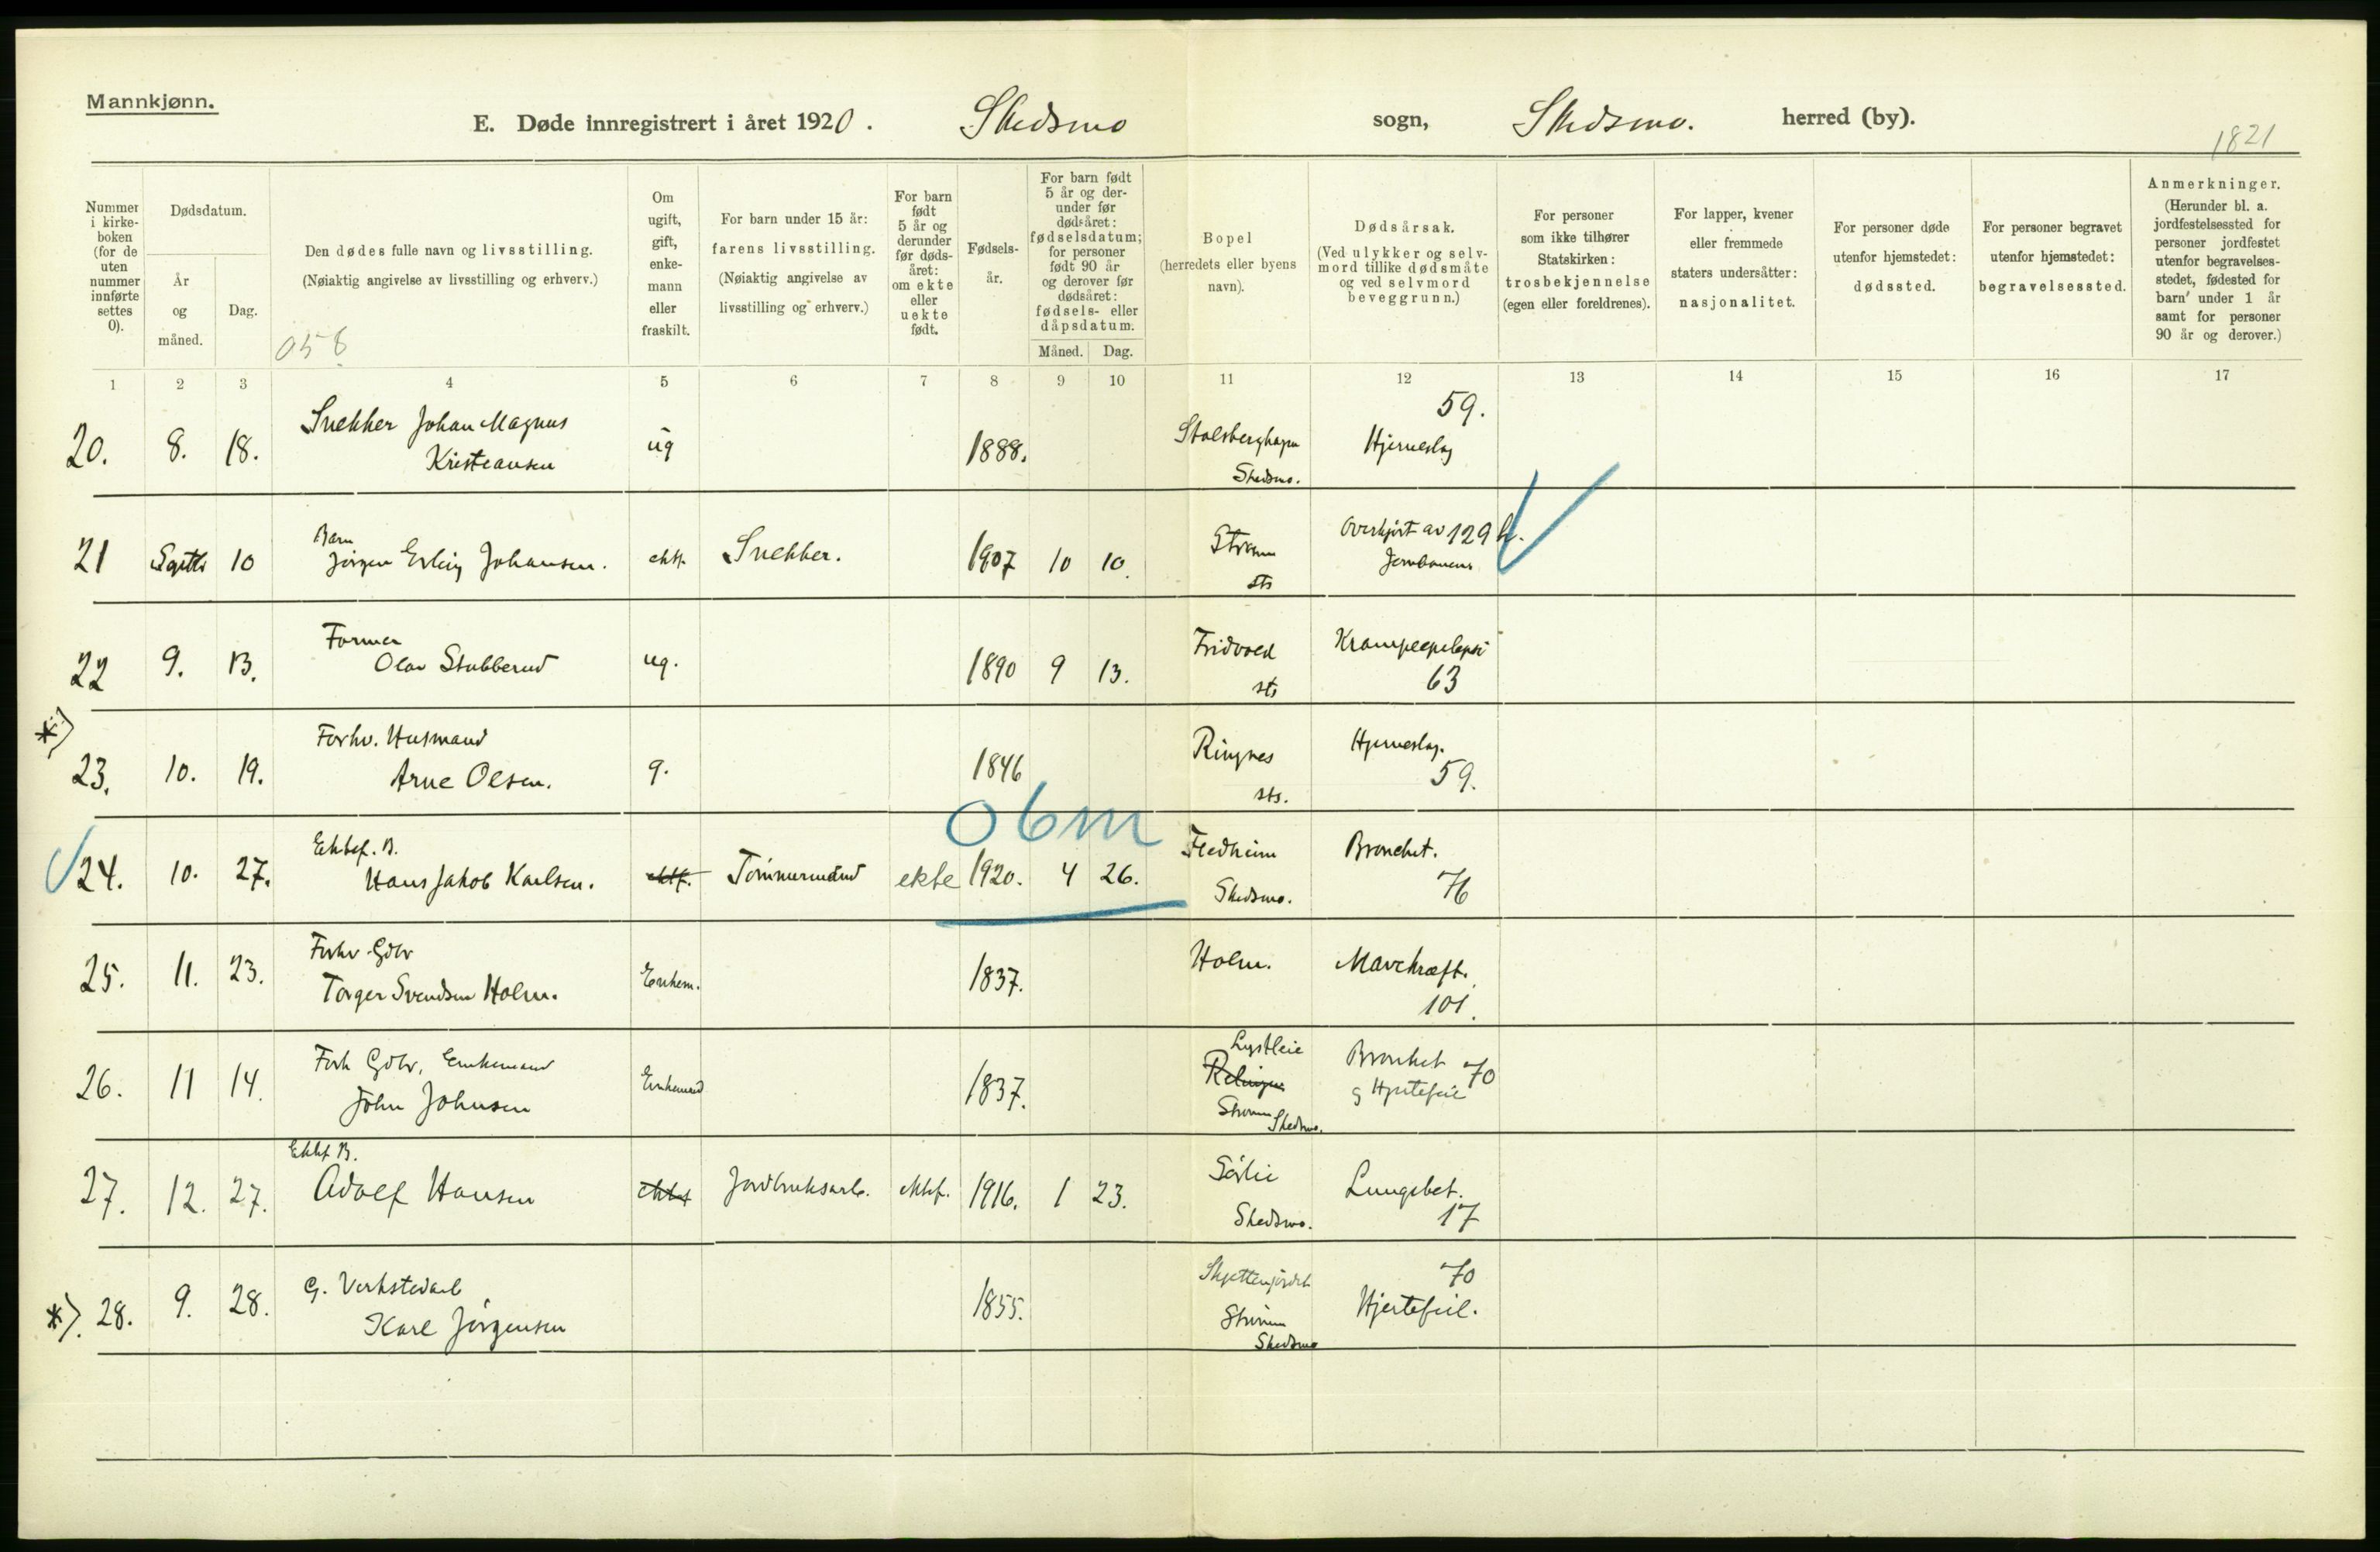 Mannkjønn.
E. Døde innregistrert i året 1920. Skedsmo sogn, Skedsmo. herred (by).
1821
Nummer i kirkeboken (for de uten nummer innførte settes 0).
Dødsdatum.
År og måned.
Dag.
Den dødes fulle navn og livsstilling.
(Nøiaktig angivelse av livsstilling og erhverv.)
058
Om ugift, gift, enkemann eller fraskilt.
For barn under 15 år: farens livsstilling.
(Nøiaktig angivelse av livsstilling og erhverv.)
For barn født 5 år og derunder før dødsåret: om ekte eller uekte født.
Fødselsår.
For barn født 5 år og derunder før dødsåret: fødselsdatum; for personer født 90 år og derover før dødsåret: fødsels- eller dåpsdatum.
Måned. Dag.
Bopel
(herredets eller byens navn).
Dødsårsak.
(Ved ulykker og selvmord tillike dødsmåte og ved selvmord beveggrunn.)
For personer som ikke tilhører Statskirken: trosbekjennelse (egen eller foreldrenes).
For lapper, kvener eller fremmede staters undersåtter: nasjonalitet.
For personer døde utenfor hjemstedet: dødssted.
For personer begravet utenfor hjemstedet: begravelsessted.
Anmerkninger.
(Herunder bl. a. jordfestelsessted for personer jordfestet utenfor begravelsesstedet, fødested for barn under 1 år samt for personer 90 år og derover.)
1 2 3 4 5 6 7 8 9 10 11 12 13 14 15 16 17
59.
Snekker Johan Magnus
20. 8. 18. Kristiansen ug 1888. Stalsberghagen Hjerneslag
Skedsmo.
Barn
21 Septb 10 Jørgen Erling Johansen. ektf. Snekker. 1907 10 10. Strøm Overkjørt av 129
sts Jernbanen
Former
22 9. 13. Olav Stubberud ug. 1890 9 13. Fridvold Krampeepilepsi
sts 63
*) Forhv. Husmand
23. 10. 19. Arne Olsen. g. 1846 Ringnes Hjerneslag.
sts. 59.
06m
Ektef. B.
24. 10. 27. Hans Jakob Karlsen. ektf. Tømmermand ekte 1920. 4 26. Fledheim Bronchit.
Skedsmo. 76
Forhv Gdbr
25. 11. 23. Torger Svendsen Holm. Enkem. 1837. Holm. Mavekræft.
101.
Forh Gdbr, Enkemand
26. 11 14. John Johnsen Enkemand 1837. Lystleie Bronkit 70
og Hjertefeil
Strømm Skedsmo.
Ektf B.
27. 12. 27. Adolf Hansen ektef Jordbruksarb. ektf. 1916. 1 23. Sørlie Lungebet.
Skedsmo. 17
G. Verkstedarb
*). 28. 9. 28. Karl Jørgensen 1855. Skjettenjordet 70
Strømm Hjertefeil.
Skedsmo